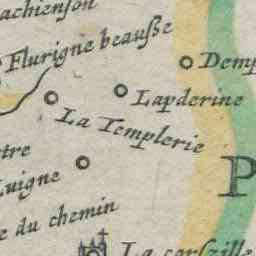 achienson
Flurigne beauße
Demp
Lapderine
La Templerie
tre
Luigne
P
e du chemin
La corszille